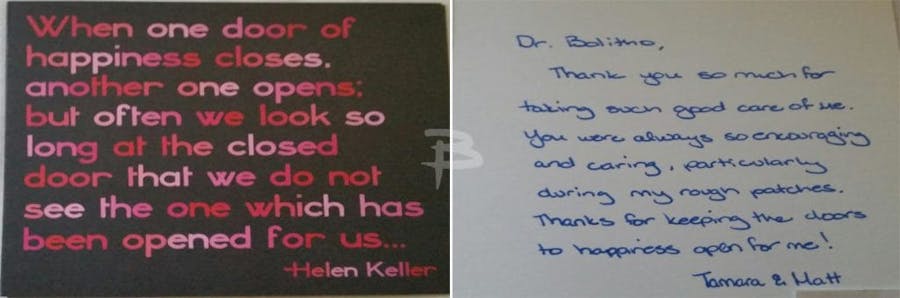 When one door of
happiness closes,
another one opens;
but often we look so
long at the closed
door that we do not
see the one which has
been opened for us...
-Helen Keller
B
Dr. Bolitho,
Thank you so much for
taking such good care of me.
You were always so encouraging
and caring, particularly
during my rough patches.
Thanks for keeping the doors
to happiness open for me!
Tamara & Matt